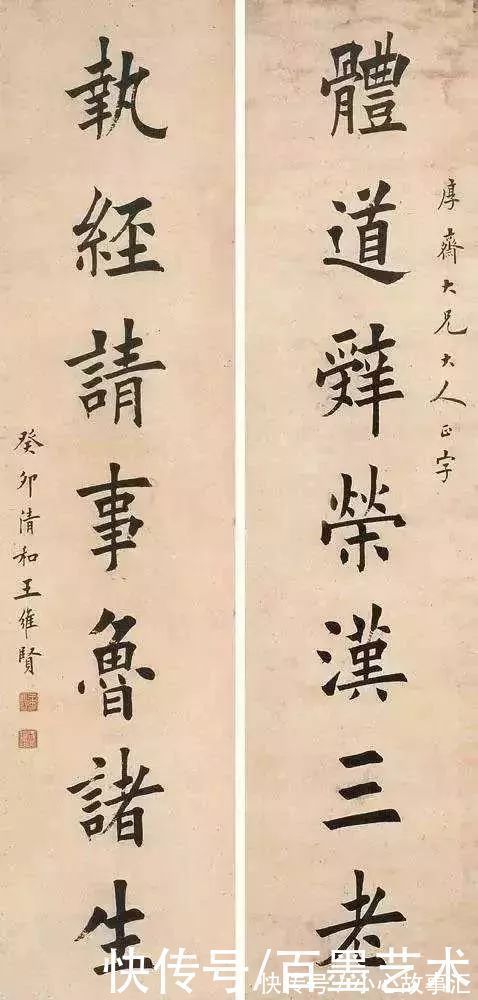 厚齋大兄大人正字
體道辤榮漢三老
執經請事魯諸生
癸卯清和王維賢
快传号/百墨艺术
快传号
故事汇